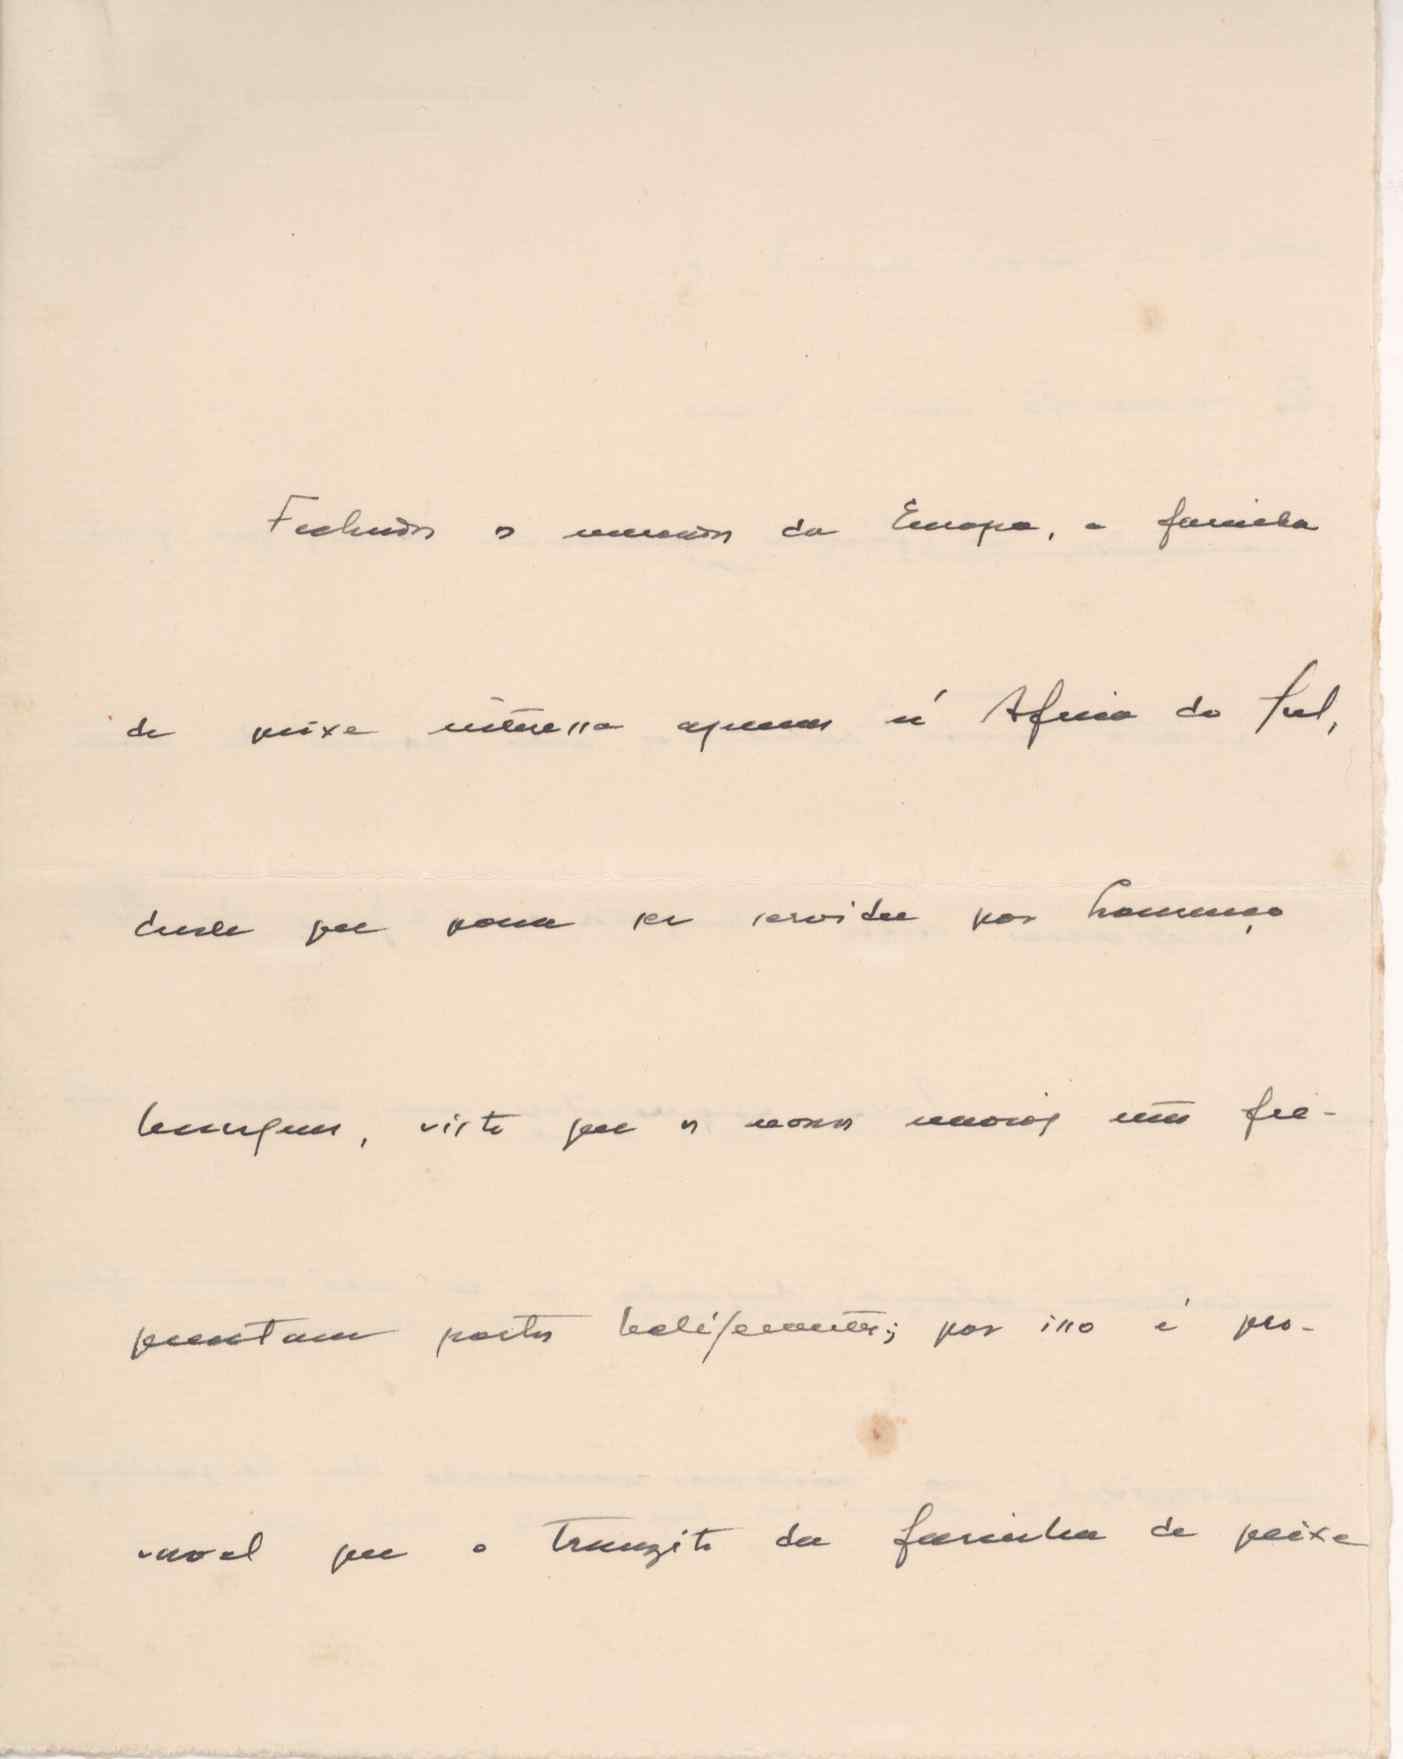 Fechados os mercados da Europa, a farinha
de peixe interessa apenas á Africa do Sul,
desde que possa ser servida por Lourenço
Marques, visto que os nossos navios não fre-
quentam portos beligerantes; por isso é pro-
vavel que o tranzito da farinha de peixe